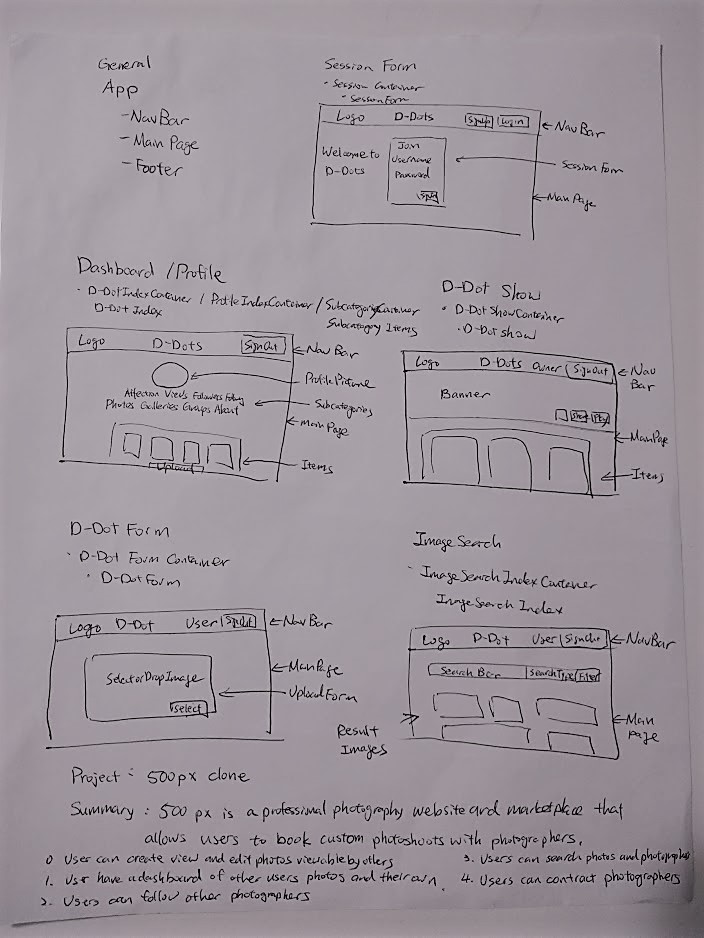 General
App
- NavBar
- Main Page
- Footer
Session Form
- Session Container
- SessionForm
Logo D-Dots SignUp Login
← NavBar
Welcome to
D-Dots
Join
Username
Password
← Session Form
← Main Page
Dashboard / Profile
- D-DotIndexContainer / ProfileIndexContainer / SubcategoryContainer
D-Dot Index Subcategory Items
Logo D-Dots SignOut
← Nav Bar
← Profile Picture
Affection Views Followers Following
Photos Galleries Groups About
← Subcategories
← Main Page
← Items
Upload
D-Dot Show
• D-Dot ShowContainer
• D-Dot show
Logo D-Dots Owner SignOut
← Nav
Bar
Banner
← ManPage
← Items
D-Dot Form
• D-Dot Form Container
• D-Dot Form
Logo D-Dot User SignOut
← NavBar
SelectorDropImage
Select
← ManPage
← Upload Form
Image Search
- ImageSearchIndexContainer
ImageSearch Index
Logo D-Dot User SignOut
← NavBar
Search Bar SearchType Filter
Result
Images
← Main
page
Project : 500px clone
Summary : 500 px is a professional photography website and marketplace that
allows users to book custom photoshoots with photographers.
0 User can create view and edit photos viewable by others
1. User have a dashboard of other users photos and their own.
2. Users can follow other photographers
3. Users can search photos and photographer
4. Users can contract photographers